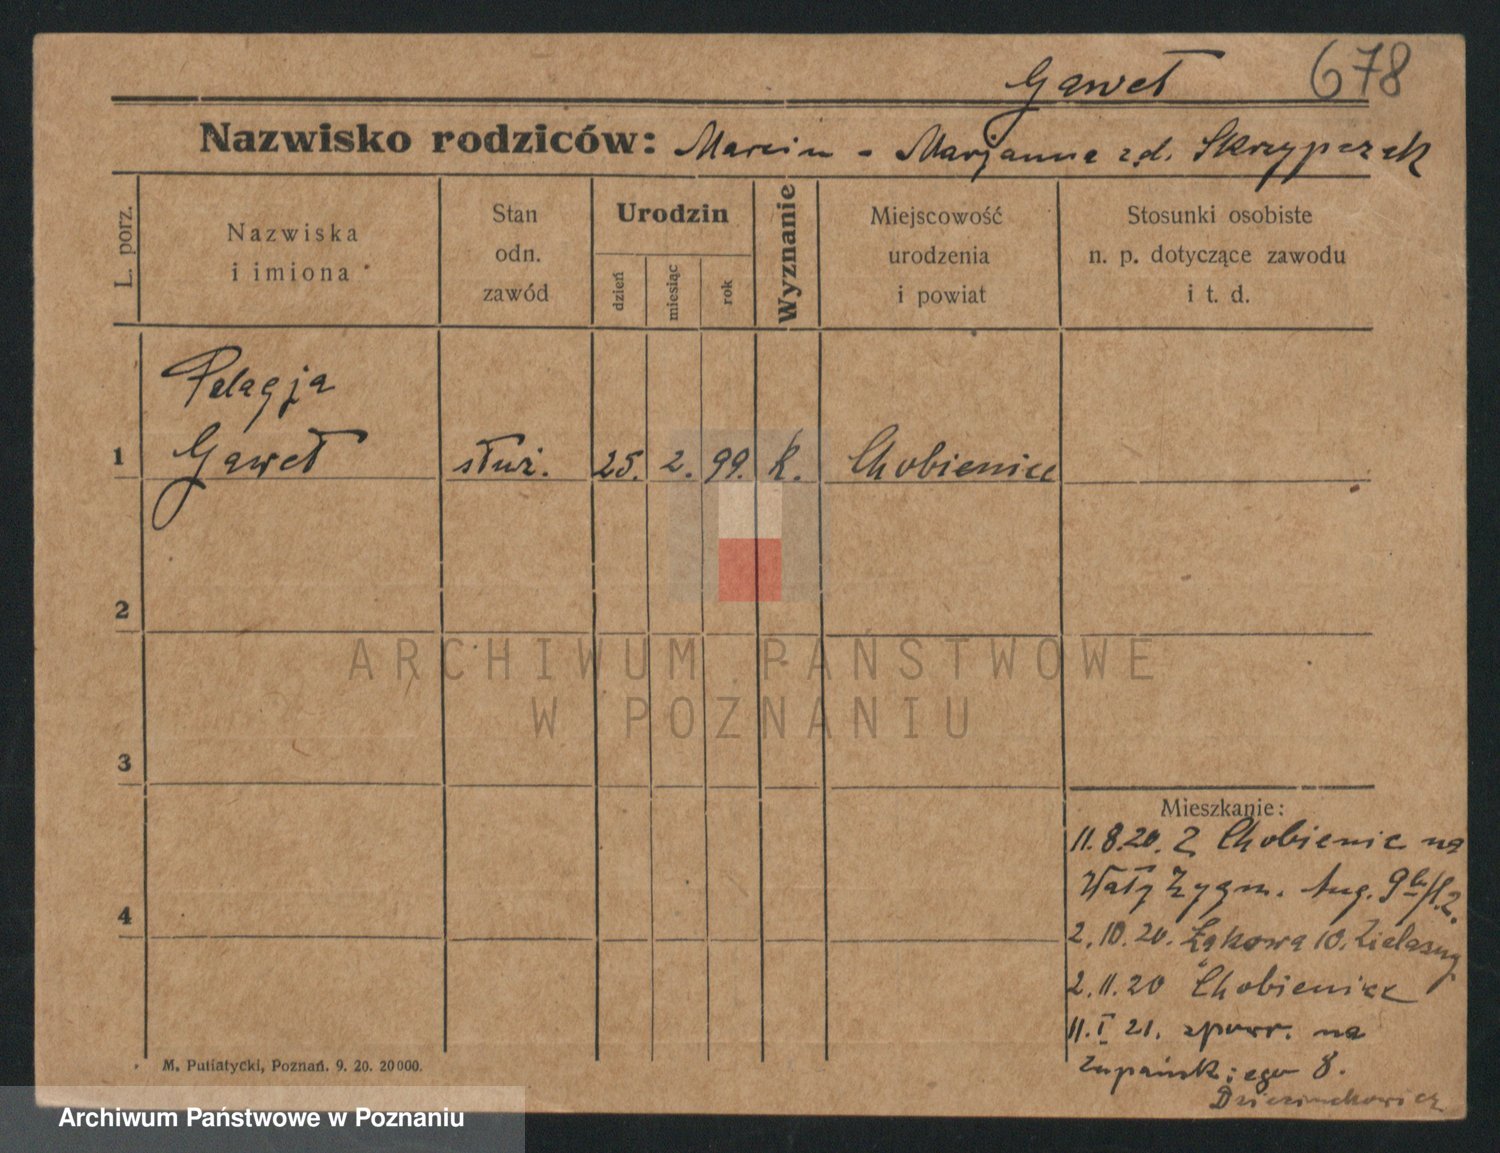 Gaweł 678
Nazwisko rodziców: Marcin - Marjanna zd. Skrzypczak
L. porz.
Nazwiska
i imiona
Stan
odn.
zawód
Urodzin
dzień
miesiąc
rok
Wyznanie
Miejscowość
urodzenia
i powiat
Stosunki osobiste
n. p. dotyczące zawodu
i t. d.
Pelagja
1 Gaweł służ. 25. 2. 99. k. Chobienice
2
ARCHIWUM PAŃSTWOWE
W POZNANIU
3
Mieszkanie:
11.8.20. Z Chobienic na
Wały Zygm. Aug. 9
4
2.10.20. Łąkowa 10.
2.11.20 Chobienice
11.I 21. zpowr. na
Żupańskiego 8.
M. Putiatycki, Poznań. 9. 20. 20000.
Archiwum Państwowe w Poznaniu